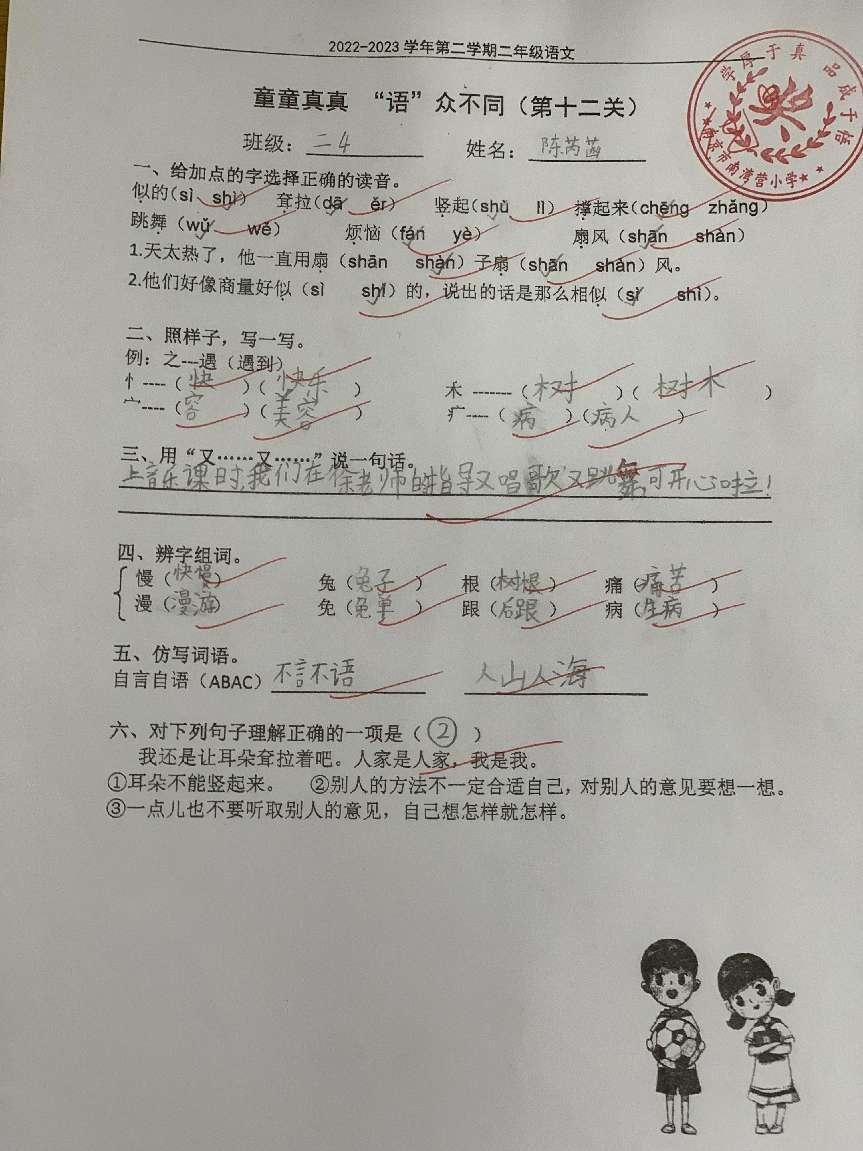 2022-2023 学年第二学期二年级语文
童童真真 “语”众不同（第十二关）
班级：二4 姓名：陈芮菡
学厚于真 品成于悟
南京市南湾营小学
一、给加点的字选择正确的读音。
似的（sì shì） 耷拉（dā ěr） 竖起（shù lì） 撑起来（chēng zhǎng）
跳舞（wǔ wě） 烦恼（fán yè） 扇风（shān shàn）
1.天太热了，他一直用扇（shān shàn）子扇（shān shàn）风。
2.他们好像商量好似（sì shì）的，说出的话是那么相似（sì shì）。
二、照样子，写一写。
例：辶---遇（遇到）
忄----（快）（快乐） 木 -------（树）（树木）
宀----（容）（美容） 疒----（病）（病人）
三、用“又……又……”说一句话。
上音乐课时,我们在徐老师的指导又唱歌又跳舞,可开心啦!
四、辨字组词。
慢（快慢） 兔（兔子） 根（树根） 痛（痛苦）
漫（漫游） 免（免单） 跟（后跟） 病（生病）
五、仿写词语。
自言自语（ABAC）不言不语 人山人海
六、对下列句子理解正确的一项是（②）
我还是让耳朵耷拉着吧。人家是人家，我是我。
①耳朵不能竖起来。 ②别人的方法不一定合适自己，对别人的意见要想一想。
③一点儿也不要听取别人的意见，自己想怎样就怎样。